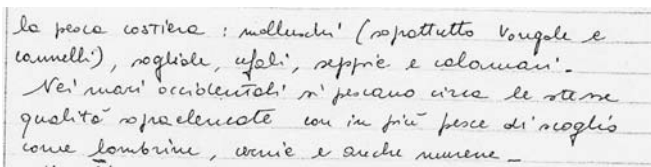 la pesca costiera : molluschi (soprattutto Vongole e
cannelli), sogliole, cefali, seppie e calamari.
Nei mari occidentali si pescano circa le stesse
qualità sopraelencate con in più pesce di scoglio
come lombrine, cernie e anche murene _